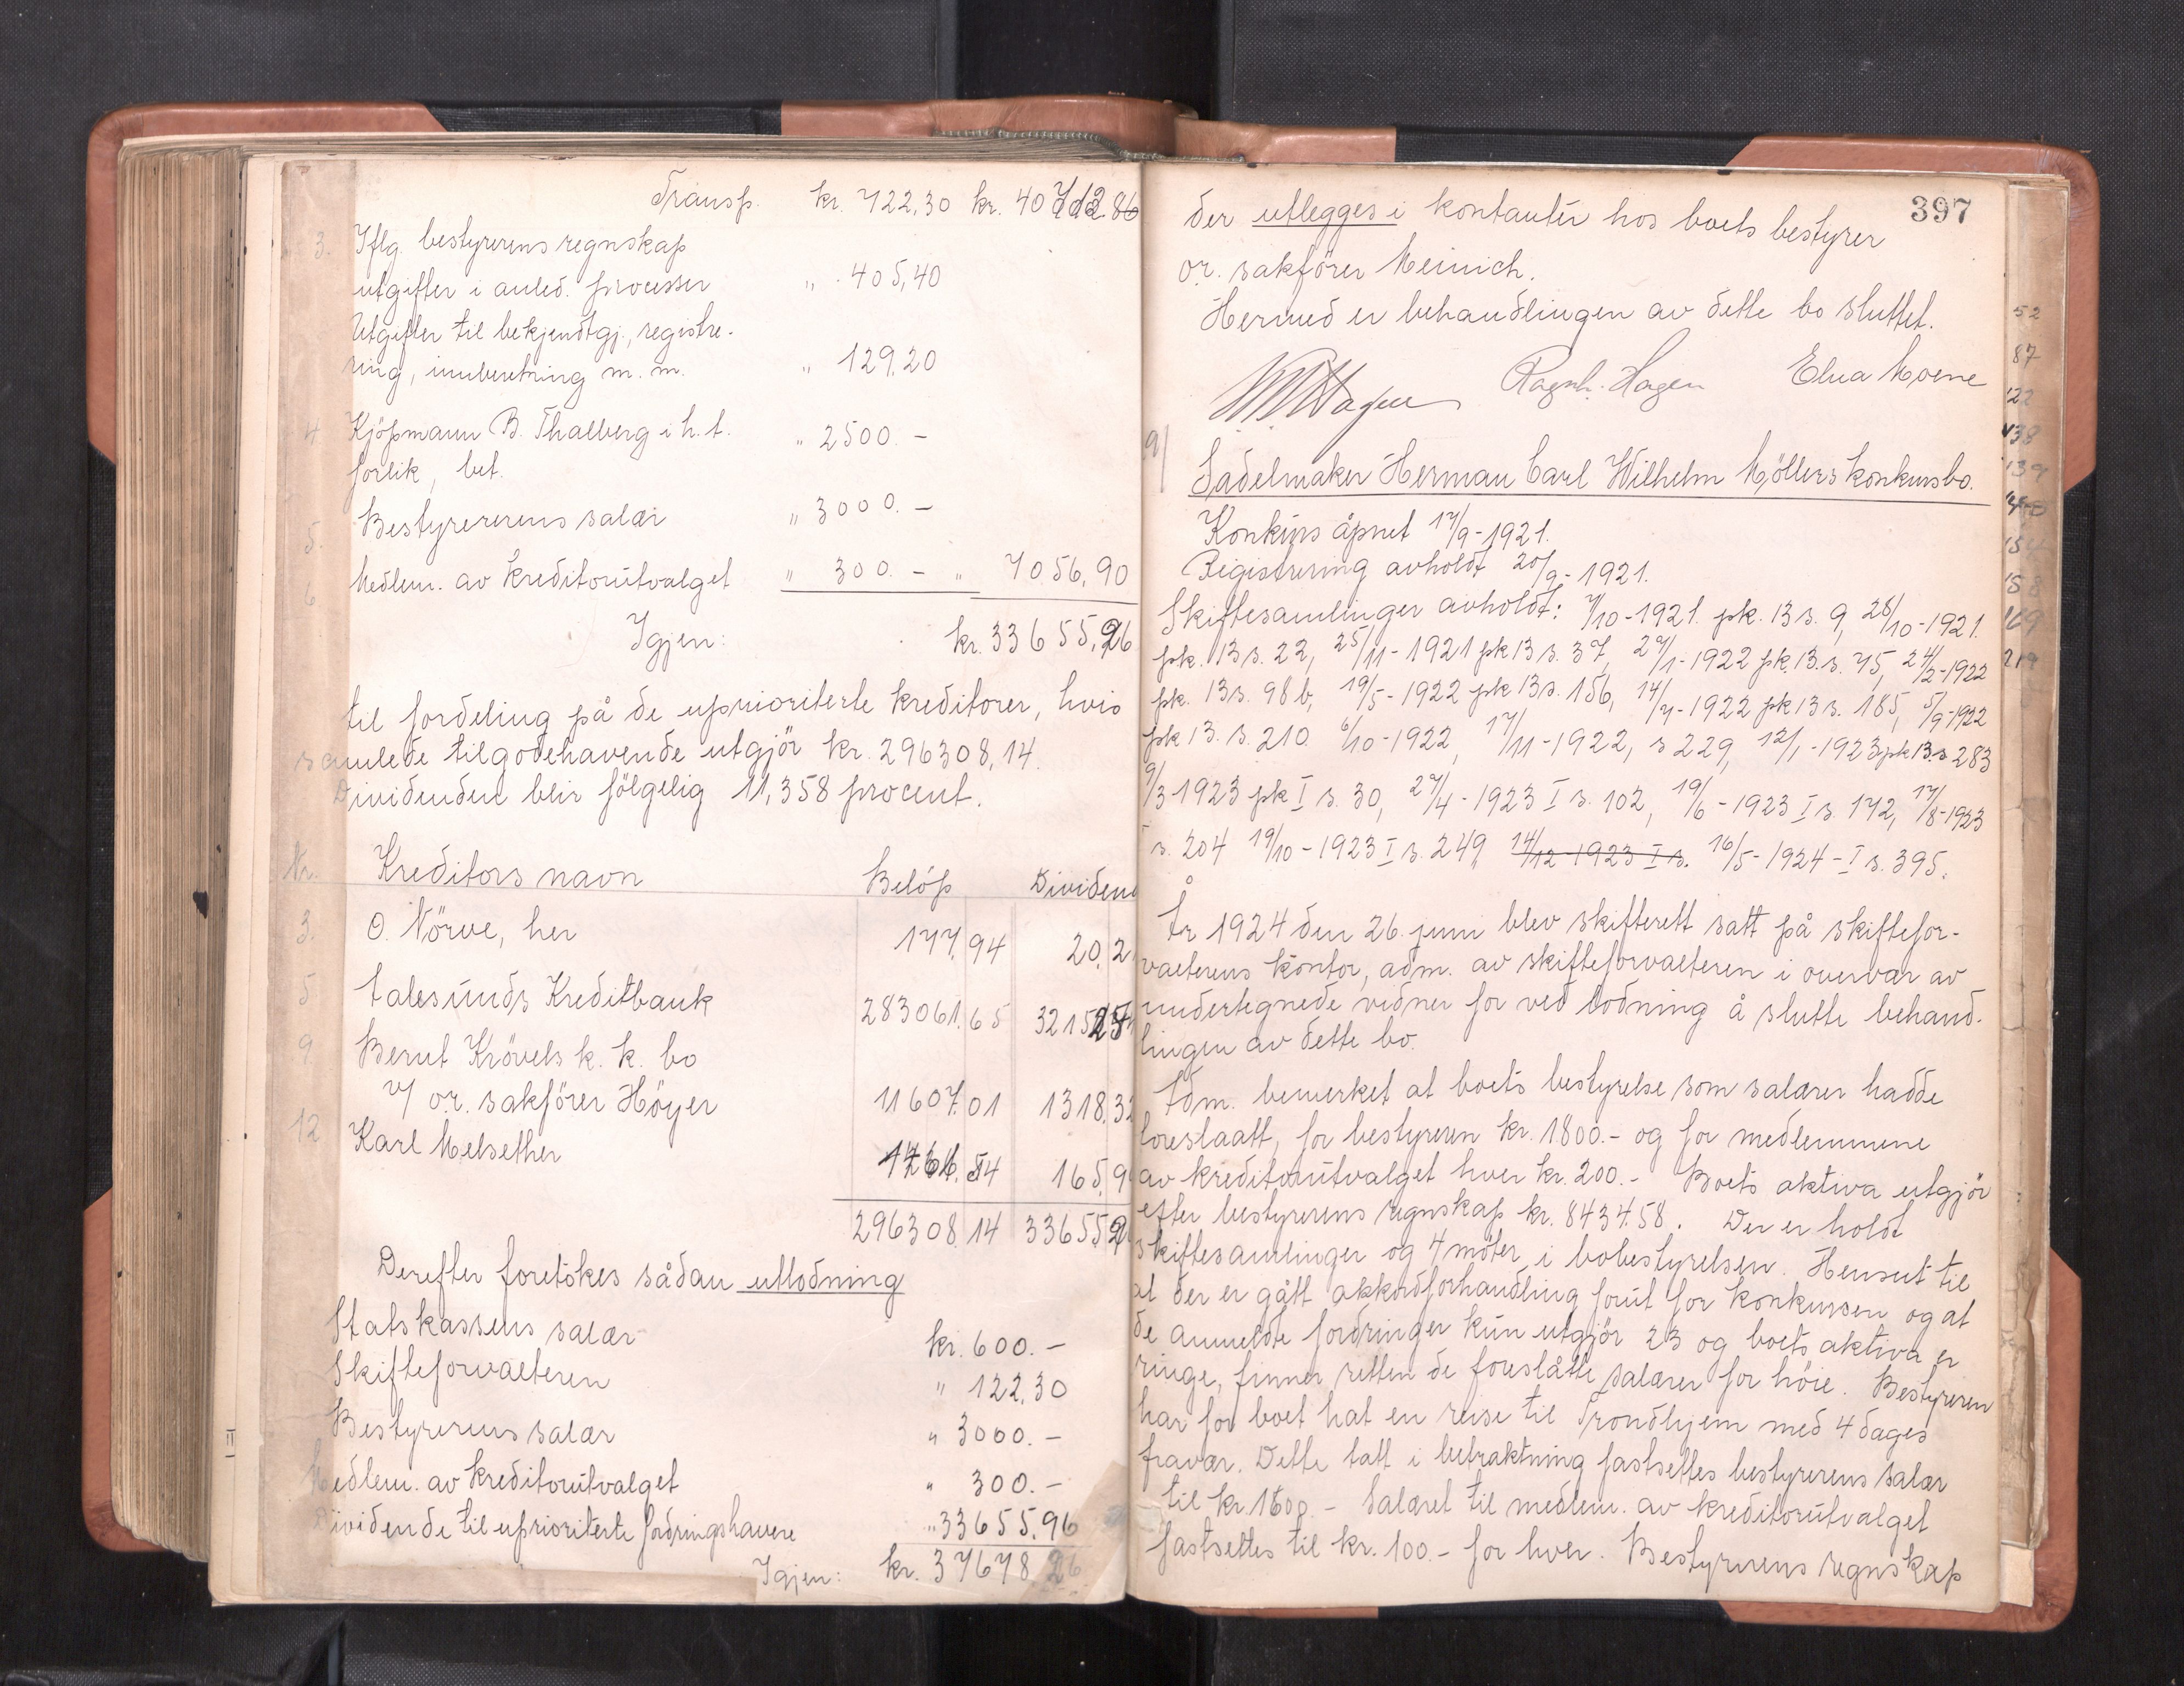 Transp. kr. 722,30 kr. 40712.86
3. Iflg. bestyrerens regnskap
utgifter i anled. processer " 405,40
Utgifter til bekjendtgj., registre-
ring, innberetning m. m. " 129,20
4. Kjöpmann B. Thalberg i h. t. " 2500.-
forlik, bet.
5. Bestyrererens salær " 3000.-
6 Medlem. av kreditorutvalget " 300.- " 7056,90
Igjen: kr. 33655,96
til fordeling på de uprioriterte kreditorer, hvis
samlede tilgodehavende utgjör kr. 296308,14.
Dividenden blir fölgelig 11,358 procent.
Nr. Kreditors navn Belöp Dividend
3. O. Nörve, her 177,94 20,2
5 Aalesunds Kreditbank 283061.65 32151
9 Bernt Krövels k. k. bo
v/ o.r. sakförer Höyer 11607.01 1318.32
12 Karl Melsether 1461.54 165,9
296308.14 33655,9
Derefter foretökes sådan utlodning
Statskassens salær kr. 600.-
Skifteforvalteren " 122,30
Bestyrerens salær " 3000.-
Medlem. av kreditorutvalget " 300.-
Dividende til uprioriterte fordringshavere " 33655,96
Igjen: kr. 37678 26
397
der utlegges i kontanter hos boets bestyrer
o.r. sakförer Meinich.
Hermed er behandlingen av dette bo sluttet.
Hagen Ragnh. Hagen Elna Moene
9/ Sadelmaker Herman Carl Wilhelm Möllers konkursbo.
Konkurs åpnet 17/9-1921.
Registrering avholdt 20/9-1921.
Skiftesamlinger avholdt: 7/10-1921. pk. 13 s. 9, 28/10-1921.
pk. 13 s. 22, 25/11-1921 pk 13 s. 37, 27/1-1922 pk. 13. s. 75, 24/2-1922
pk. 13 s. 98 b, 19/5-1922 pk 13 s. 156, 14/7-1922 pk 13 s. 185, 5/9-1922
pk 13. s. 210. 6/10-1922, 17/11-1922, s 229, 12/1-1923 pk 13. s 283
9/3 1923 pk I s. 30, 27/4-1923 I s. 102, 19/6-1923 I s. 172, 17/8-1923
I s. 204 19/10-1923 I s. 249, 14/12-1923 I s. 16/5-1924-I s. 395.
År 1924 den 26. juni blev skifterett satt på skiftefor-
valterens kontor, adm. av skifteforvalteren i overvær av
undertegnede vidner for ved lodning å slutte behand-
lingen av dette bo.
Adm. bemerket at boets bestyrelse som salærer hadde
foreslaatt, for bestyreren kr. 1800.- og for medlemmene
av kreditorutvalget hver kr. 200.- Boets aktiva utgjör
efter bestyrerens regnskap kr. 8434.58. Der er holdt
skiftesamlinger og 4 möter i bobestyrelsen. Hensett til
at der er gått akkordforhandling forut for konkursen og at
de anmeldte fordringer kun utgjör 23 og boets aktiva er
ringe, finner retten de foreslåtte salærer for höie. Bestyreren
har for boet hat en reise til Trondhjem med 4 dages
fravær. Dette tatt i betraktning fastsettes bestyrerens salær
til kr. 1600.- Salæret til medlem. av kreditorutvalget
fastsettes til kr. 100.- for hver. Bestyrerens regnskap
52
87
122
138
139
154
158
169
219